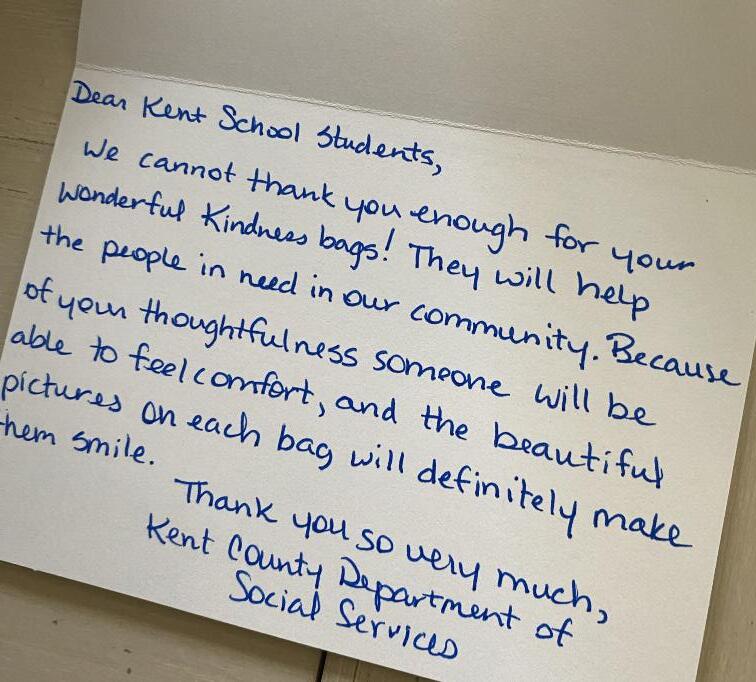 Dear Kent School Students,
We cannot thank you enough for your
wonderful Kindness bags! They will help
the people in need in our community. Because
of your thoughtfulness someone will be
able to feel comfort, and the beautiful
pictures on each bag will definitely make
them smile.
Thank you so very much,
Kent County Department of
Social Services